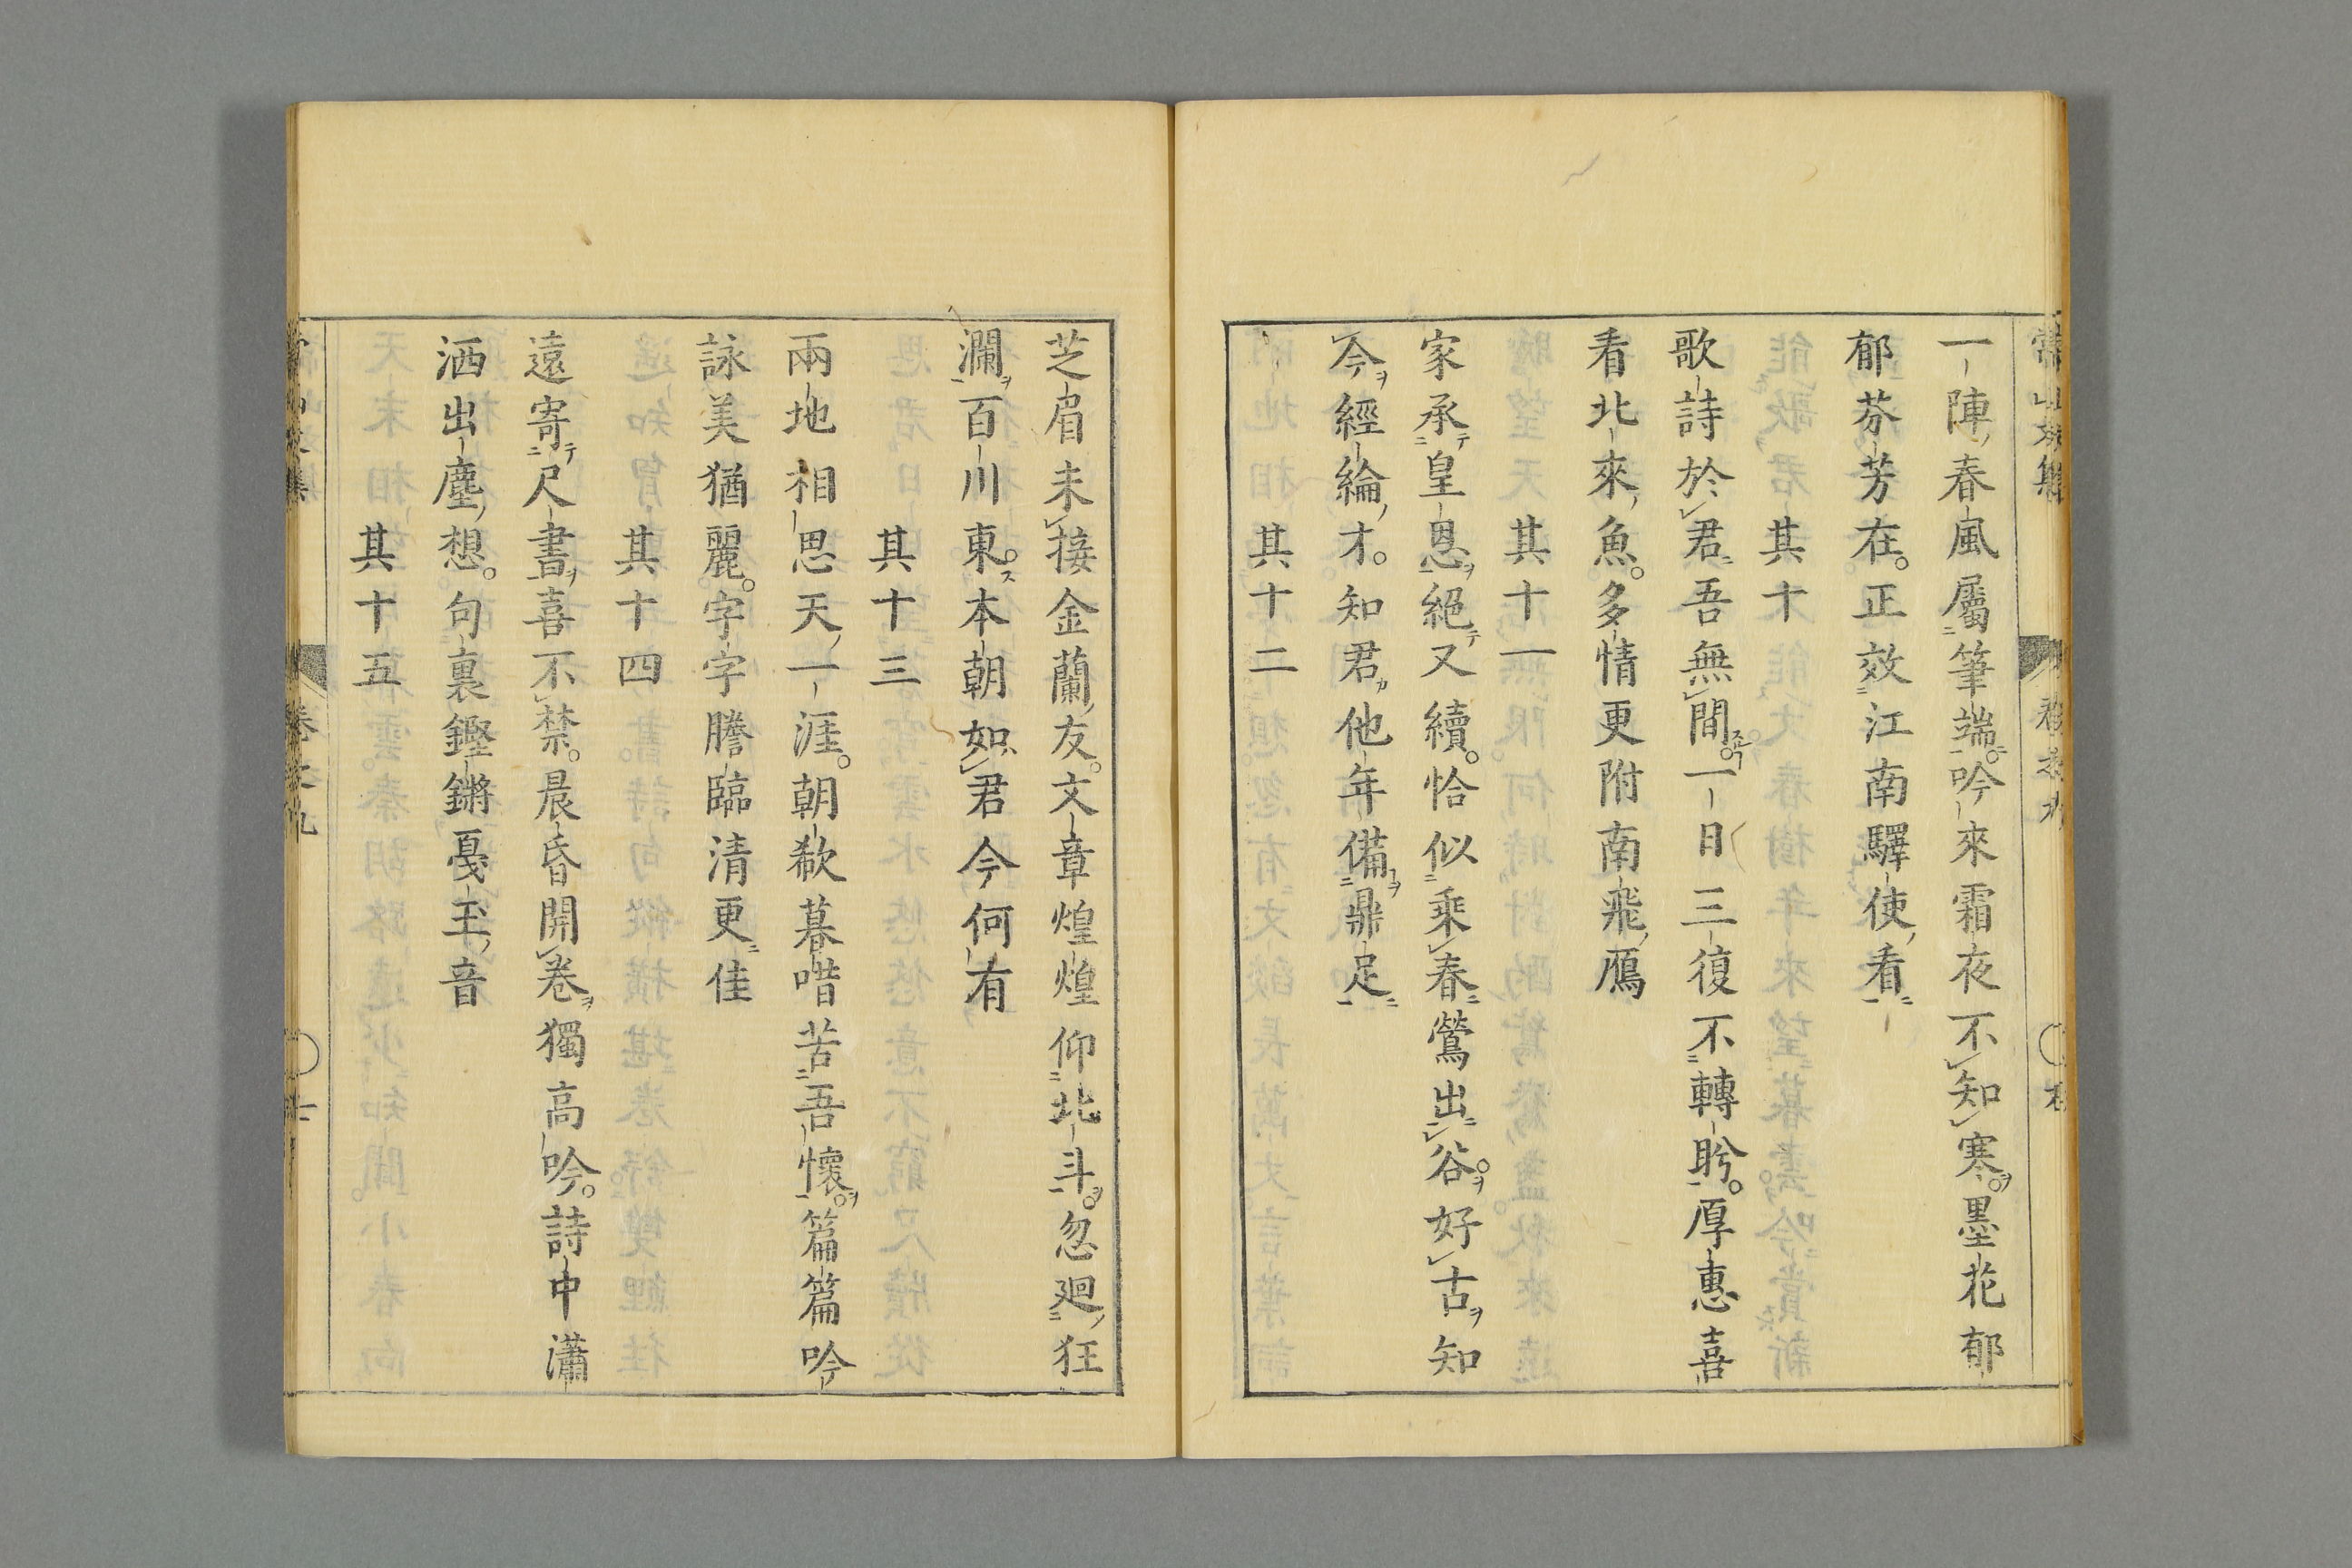 一陣春風屬筆端吟來霜夜不知寒墨花郁
郁芬芳在正效江南驛使看
其十
歌詩於君吾無間一日三復不轉眄厚惠喜
看北來魚多情更附南飛鴈
其十一
家承皇恩絕又續恰似乘春鶯出谷好古知
今經綸才知君他年備鼎足
其十二
芝眉未接金蘭友文章煌煌仰北斗忽廻狂
瀾百川東本朝如君今何有
其十三
兩地相思天一涯朝欷暮喈苦吾懷篇篇吟
詠美猶麗字字謄臨清更佳
其十四
遠寄尺書喜不禁晨昏開卷獨高吟詩中瀟
洒出塵想句裏鏗鏘戞玉音
其十五